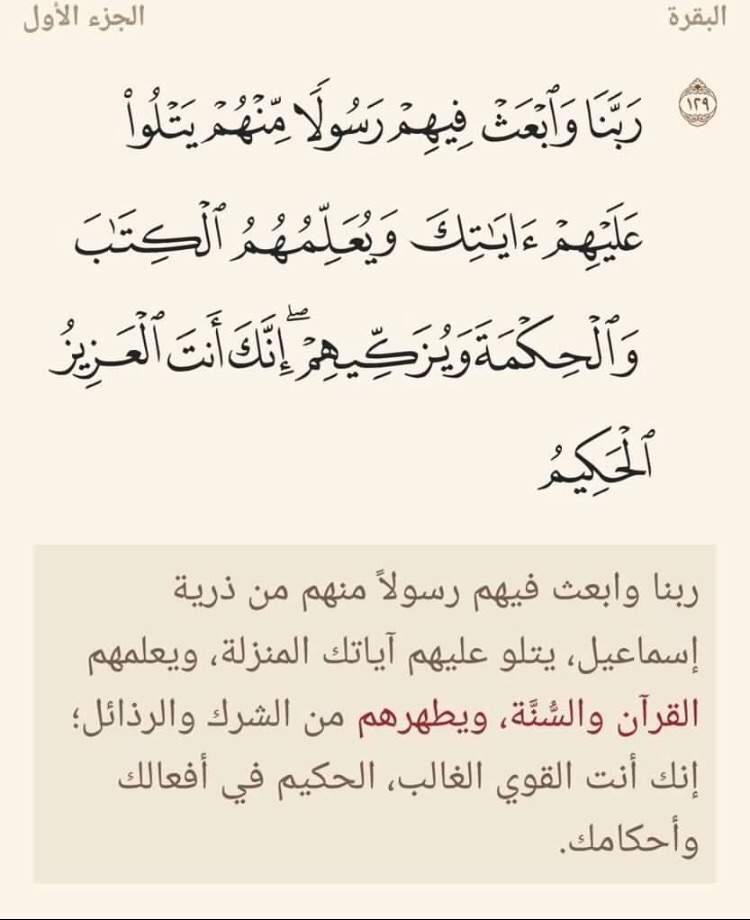 البقرة الجزء الأول
١٢٩ رَبَّنَا وَٱبْعَثْ فِيهِمْ رَسُولًا مِّنْهُمْ يَتْلُوا۟
عَلَيْهِمْ ءَايَـٰتِكَ وَيُعَلِّمُهُمُ ٱلْكِتَـٰبَ
وَٱلْحِكْمَةَ وَيُزَكِّيهِمْ ۖ إِنَّكَ أَنتَ ٱلْعَزِيزُ
ٱلْحَكِيمُ
ربنا وابعث فيهم رسولاً منهم من ذرية
إسماعيل، يتلو عليهم آياتك المنزلة، ويعلمهم
القرآن والسُّنَّة، ويطهرهم من الشرك والرذائل؛
إنك أنت القوي الغالب، الحكيم في أفعالك
وأحكامك.